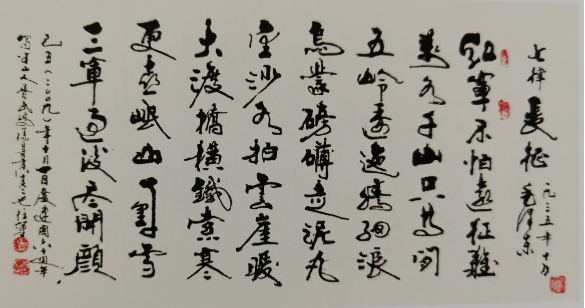 七律 長征 一九三五年十月
毛澤东
红軍不怕遠征難
萬水千山只等閒
五岭逶迤騰细浪
烏蒙磅礴走泥丸
金沙水拍雲崖暖
大渡橋橫鐵索寒
更喜岷山千里雪
三軍过後尽開顏
己丑（二〇〇九）年十月一日